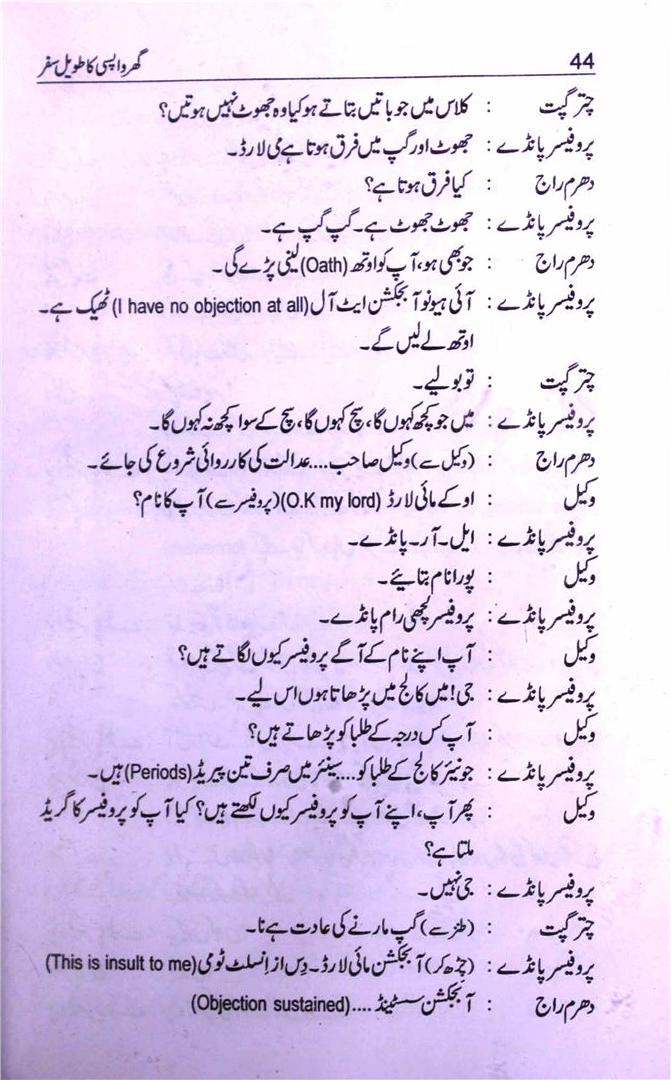 44 گھر واپسی کا طویل سفر
چتر گپت : کلاس میں جو باتیں بتاتے ہو کیا وہ جھوٹ نہیں ہوتیں؟
پروفیسر پانڈے : جھوٹ اور گپ میں فرق ہوتا ہے می لارڈ۔
دھرم راج : کیا فرق ہوتا ہے؟
پروفیسر پانڈے : جھوٹ جھوٹ ہے۔ گپ گپ ہے۔
دھرم راج : جو بھی ہو، آپ کو اوتھ (Oath) لینی پڑے گی۔
پروفیسر پانڈے : آئی ہیو نو آبجکشن ایٹ آل (I have no objection at all) ٹھیک ہے۔
اوتھ لے لیں گے۔
چتر گپت : تو بولیے۔
پروفیسر پانڈے : میں جو کچھ کہوں گا، سچ کہوں گا، سچ کے سوا کچھ نہ کہوں گا۔
دھرم راج : (وکیل سے) وکیل صاحب .... عدالت کی کارروائی شروع کی جائے۔
وکیل : اوکے مائی لارڈ (O.K my lord) (پروفیسر سے) آپ کا نام؟
پروفیسر پانڈے : ایل۔ آر۔ پانڈے۔
وکیل : پورا نام بتائیے۔
پروفیسر پانڈے : پروفیسر لچھی رام پانڈے۔
وکیل : آپ اپنے نام کے آگے پروفیسر کیوں لگاتے ہیں؟
پروفیسر پانڈے : جی! میں کالج میں پڑھاتا ہوں اس لیے۔
وکیل : آپ کس درجہ کے طلبا کو پڑھاتے ہیں؟
پروفیسر پانڈے : جونیئر کالج کے طلبا کو .... سینئر میں صرف تین پیریڈ (Periods) ہیں۔
وکیل : پھر آپ، اپنے آپ کو پروفیسر کیوں لکھتے ہیں؟ کیا آپ کو پروفیسر کا گریڈ
ملتا ہے؟
پروفیسر پانڈے : جی نہیں۔
چتر گپت : (طنز سے) گپ مارنے کی عادت ہے نا۔
پروفیسر پانڈے : (چڑھ کر) آبجکشن مائی لارڈ۔ دِس از اِنسلٹ ٹو می (This is insult to me)
دھرم راج : آبجکشن سسٹینڈ .... (Objection sustained)